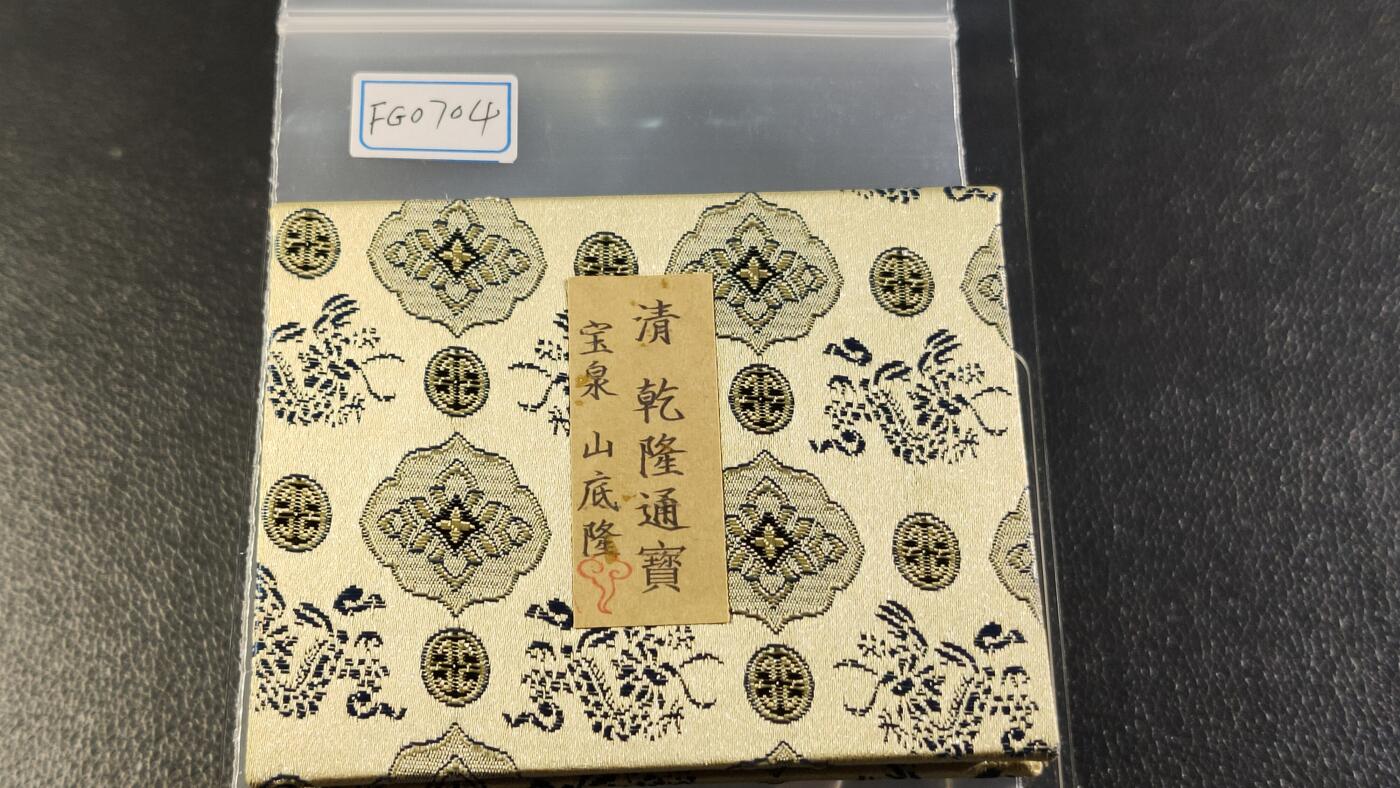 FG0704
清 乾隆通寶
宝泉 山底隆